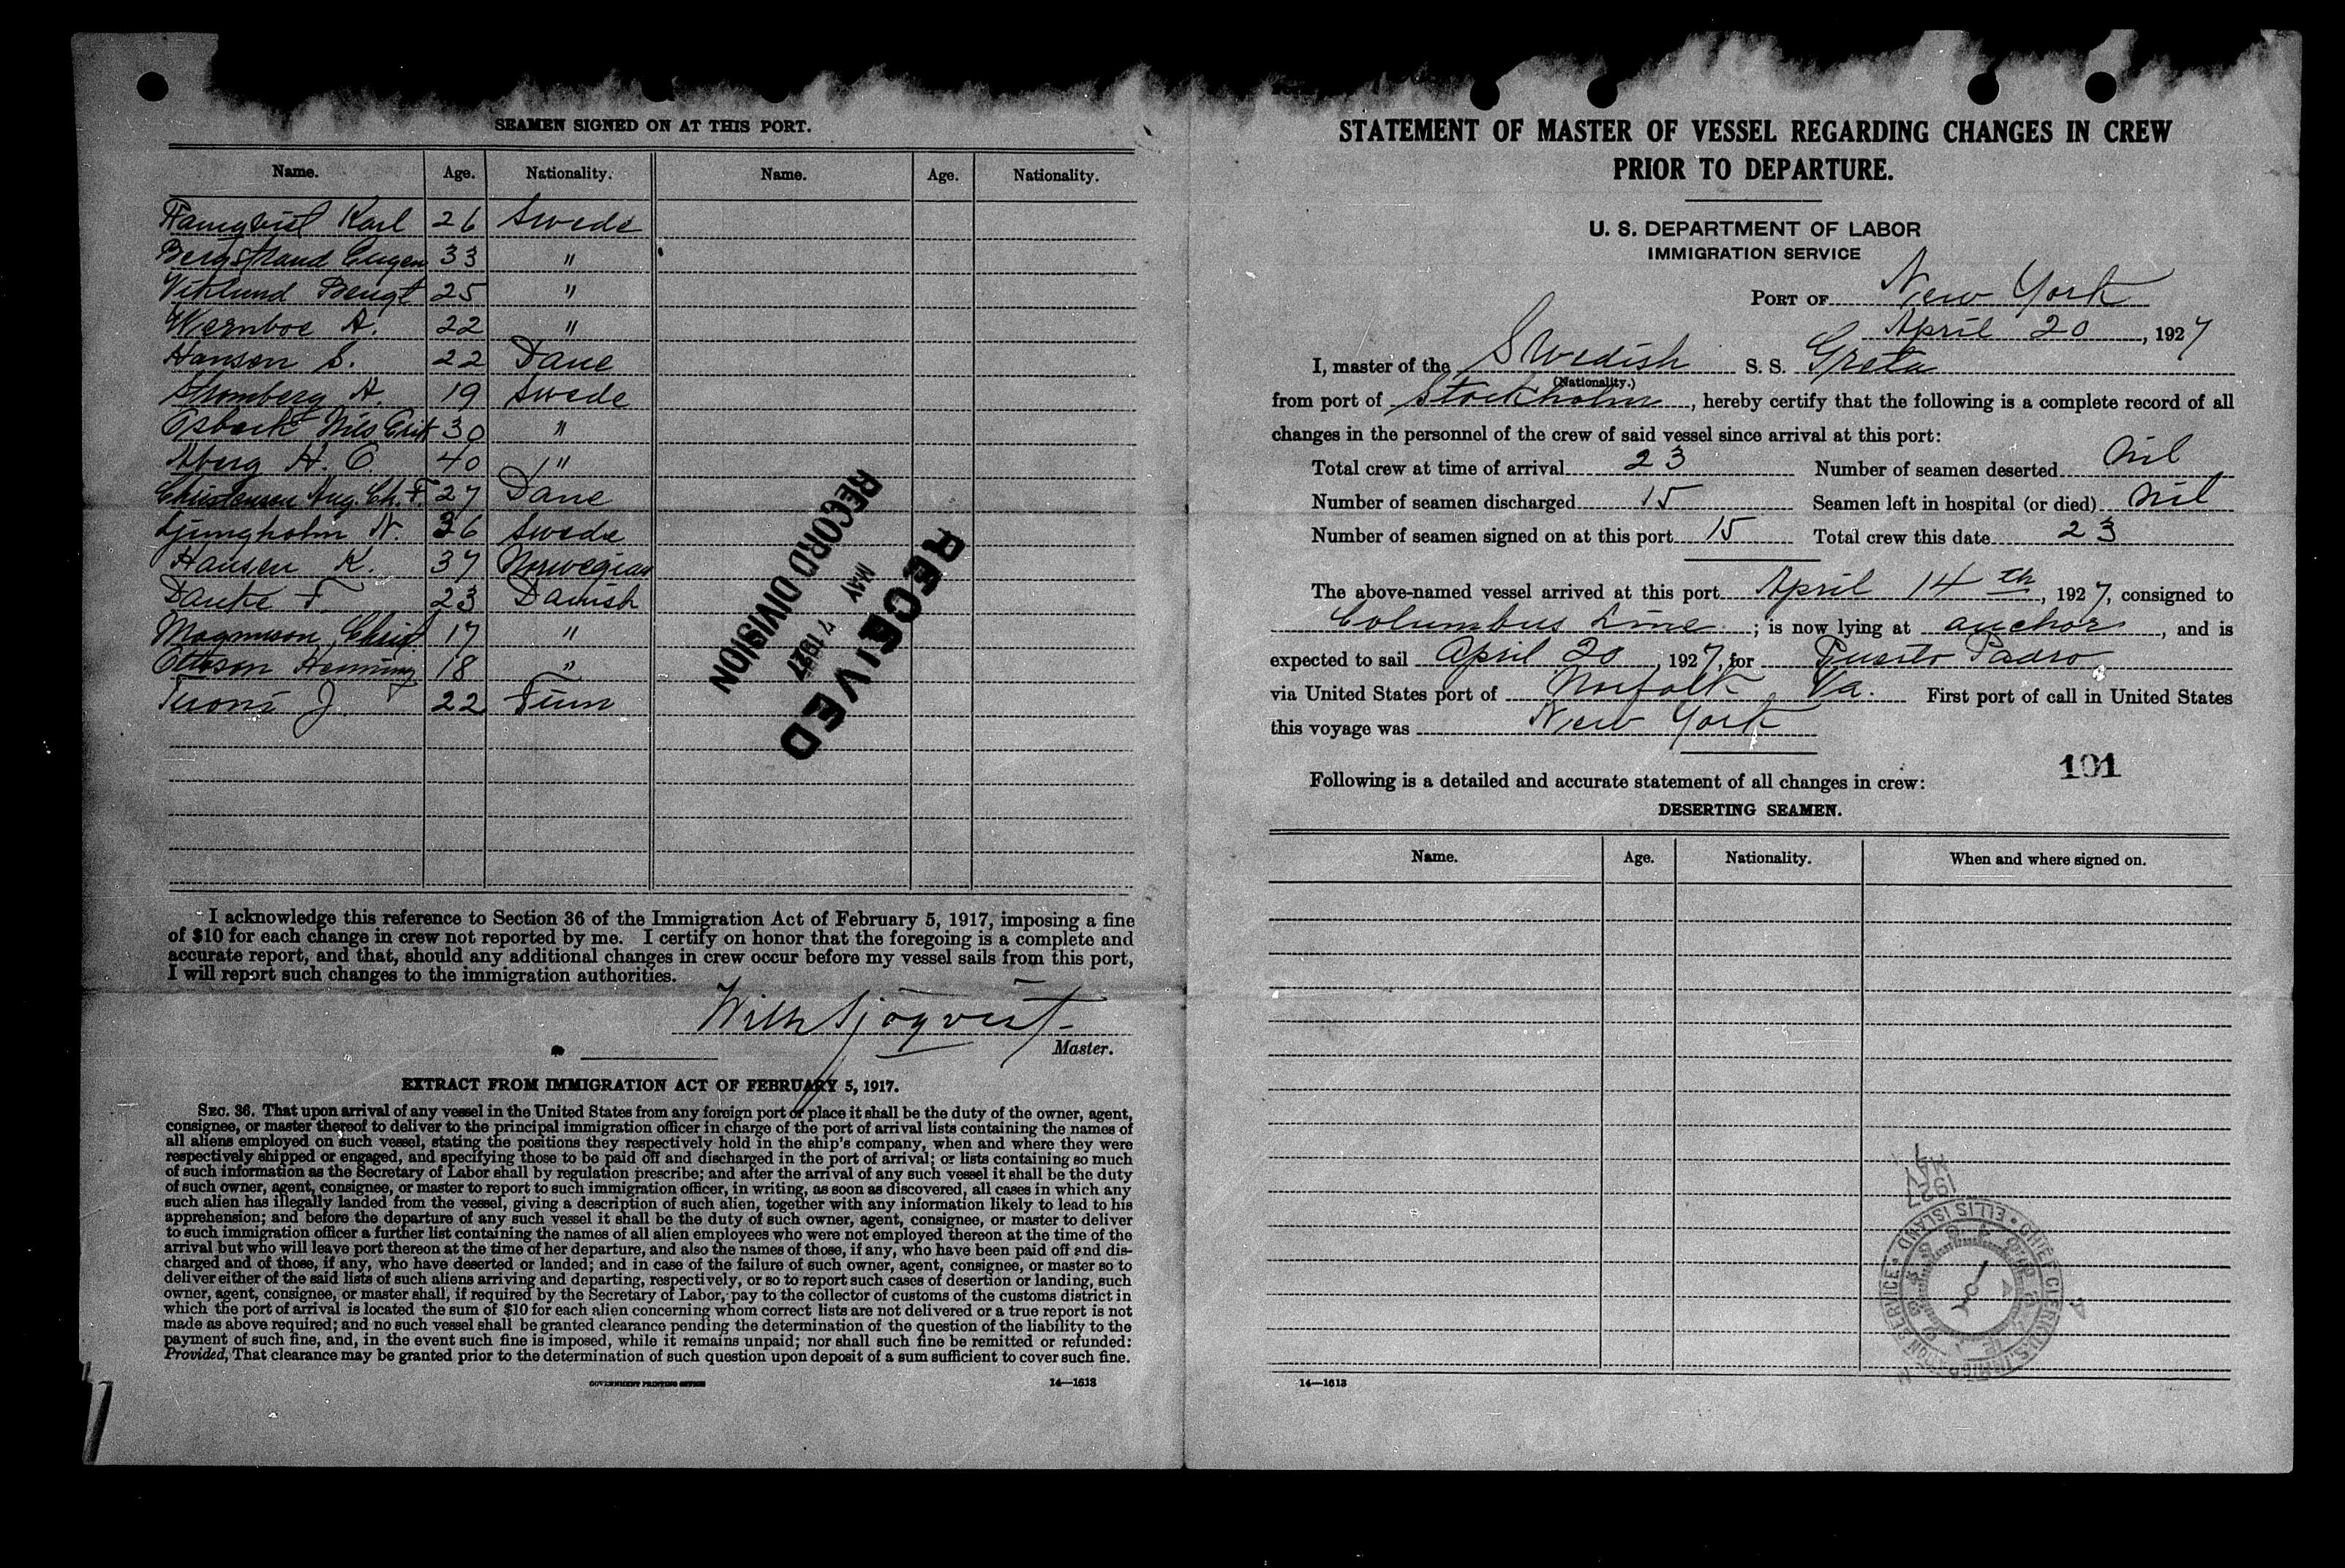 SEAMEN SIGNED ON AT THIS PORT.
Name. Age. Nationality. Name. Age. Nationality.
Karl 26 Swede
Bergstrand Eugen 33 "
Viklund Bengt 25 "
Wernboe A. 22 "
Hansen S. 22 Dane
Stromberg A. 19 Swede
Nils Erik 30 "
Aberg H. O. 40 "
Christensen Aug. Ch. F. 27 Dane
Ljungholm N. 36 Swede
Hansen K. 37 Norwegian
F. 23 Danish
Magnuson Christ. 17 "
Henning 18 "
J. 22 Finn
RECEIVED
MAY 7 1927
RECORD DIVISION
I acknowledge this reference to Section 36 of the Immigration Act of February 5, 1917, imposing a fine
of $10 for each change in crew not reported by me. I certify on honor that the foregoing is a complete and
accurate report, and that, should any additional changes in crew occur before my vessel sails from this port,
I will report such changes to the immigration authorities.
Wilh Sjöqvist
Master.
EXTRACT FROM IMMIGRATION ACT OF FEBRUARY 5, 1917.
SEC. 36. That upon arrival of any vessel in the United States from any foreign port or place it shall be the duty of the owner, agent,
consignee, or master thereof to deliver to the principal immigration officer in charge of the port of arrival lists containing the names of
all aliens employed on such vessel, stating the positions they respectively hold in the ship's company, when and where they were
respectively shipped or engaged, and specifying those to be paid off and discharged in the port of arrival; or lists containing so much
of such information as the Secretary of Labor shall by regulation prescribe; and after the arrival of any such vessel it shall be the duty
of such owner, agent, consignee, or master to report to such immigration officer, in writing, as soon as discovered, all cases in which any
such alien has illegally landed from the vessel, giving a description of such alien, together with any information likely to lead to his
apprehension; and before the departure of any such vessel it shall be the duty of such owner, agent, consignee, or master to deliver
to such immigration officer a further list containing the names of all alien employees who were not employed thereon at the time of the
arrival but who will leave port thereon at the time of her departure, and also the names of those, if any, who have been paid off and dis-
charged and of those, if any, who have deserted or landed; and in case of the failure of such owner, agent, consignee, or master so to
deliver either of the said lists of such aliens arriving and departing, respectively, or so to report such cases of desertion or landing, such
owner, agent, consignee, or master shall, if required by the Secretary of Labor, pay to the collector of customs of the customs district in
which the port of arrival is located the sum of $10 for each alien concerning whom correct lists are not delivered or a true report is not
made as above required; and no such vessel shall be granted clearance pending the determination of the question of the liability to the
payment of such fine, and, in the event such fine is imposed, while it remains unpaid; nor shall such fine be remitted or refunded:
Provided, That clearance may be granted prior to the determination of such question upon deposit of a sum sufficient to cover such fine.
GOVERNMENT PRINTING OFFICE 14—1613
STATEMENT OF MASTER OF VESSEL REGARDING CHANGES IN CREW
PRIOR TO DEPARTURE.
U. S. DEPARTMENT OF LABOR
IMMIGRATION SERVICE
PORT OF New York
April 20, 1927
I, master of the Swedish S. S. Greta
(Nationality.)
from port of Stockholm, hereby certify that the following is a complete record of all
changes in the personnel of the crew of said vessel since arrival at this port:
Total crew at time of arrival 23 Number of seamen deserted nil
Number of seamen discharged 15 Seamen left in hospital (or died) nil
Number of seamen signed on at this port 15 Total crew this date 23
The above-named vessel arrived at this port April 14th, 1927, consigned to
Columbus Line; is now lying at anchor, and is
expected to sail April 20, 1927, for Puerto Padro
via United States port of Norfolk, Va. First port of call in United States
this voyage was New York
101
Following is a detailed and accurate statement of all changes in crew:
DESERTING SEAMEN.
Name. Age. Nationality. When and where signed on.
1927
CHIEF CLERK U.S. IMMIGRATION SERVICE · ELLIS ISLAND
14—1613